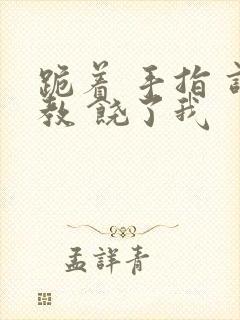 跪着 手指
教 饶了我
孟详青